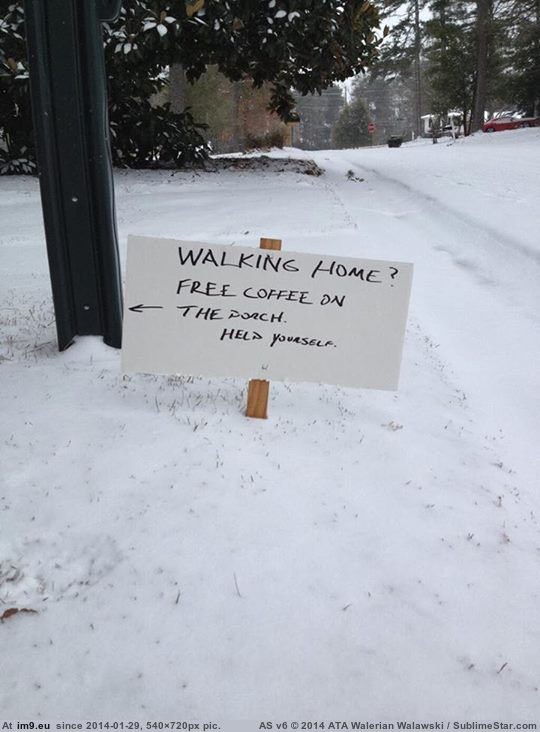 WALKING HOME?
FREE COFFEE ON
← THE PORCH.
HELP YOURSELF.
At im9.eu since 2014-01-29, 540×720px pic. AS v6 © 2014 ATA Walerian Walawski / SublimeStar.com